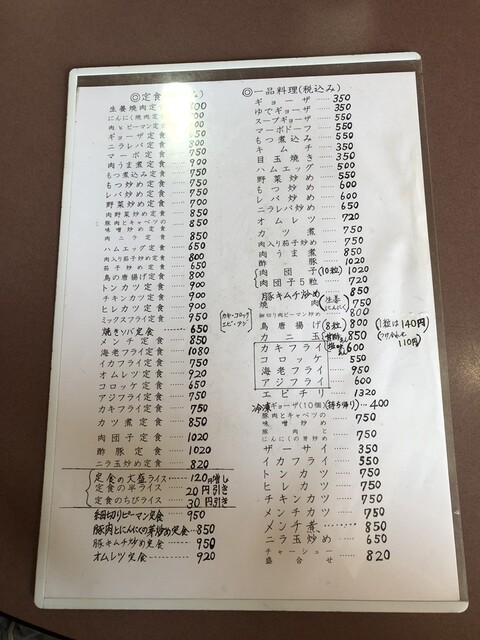 ◎定食
生姜焼肉定食
にんにく焼肉定食
肉とピーマン定食 800
ギョーザ定食 750
ニラレバ定食 750
マーボ定食 750
肉うま煮定食 900
もつ煮定食 750
もつ炒め定食 750
レバ炒め定食 750
野菜炒め定食 700
肉野菜炒め定食 850
豚肉とキャベツの味噌炒め定食 850
肉ニラ定食 850
ハムエッグ定食 650
肉入り茄子炒め定食 800
茄子炒め定食 650
鳥の唐揚げ定食 800
トンカツ定食 900
チキンカツ定食 900
ヒレカツ定食 900
ミックスフライ定食 950
(カキ・コロッケ エビ・アジ)
焼きソバ定食 650
メンチ定食 850
海老フライ定食 1080
イカフライ定食 750
オムレツ定食 920
コロッケ定食 650
アジフライ定食 750
カキフライ定食 750
カツ煮定食 850
肉団子定食 1020
酢豚定食 1020
ニラ玉炒め定食 820
定食の大盛ライス 120円増し
定食の半ライス 20円引き
定食のちびライス 30円引き
細切りピーマン定食 950
豚肉とにんにくの芽炒め定食 850
豚キムチ炒め定食 950
オムレツ定食 920
◎一品料理(税込み)
ギョーザ 350
ゆでギョーザ 350
スープギョーザ 550
マーボドーフ 550
もつ煮込み 550
キムチ 350
目玉焼き 350
ハムエッグ 500
野菜炒め 550
もつ炒め 600
レバ炒め 600
ニラレバ炒め 650
オムレツ 720
カツ煮 750
肉入り茄子炒め 750
肉うま煮 850
酢豚 1020
肉団子(10粒) 1020
肉団子5粒 720
豚キムチ炒め 750
焼肉(生姜 にんにく) 750
細切り肉ピーマン炒め 800
鳥唐揚げ(8粒) 800
(1粒は140円 110円)
カニ玉 850
カキフライ 600
コロッケ 550
海老フライ 950
アジフライ 600
エビチリ 1320
冷凍ギョーザ(10個)(持ち帰り) 400
豚肉とキャベツの味噌炒め 750
豚肉とにんにくの芽炒め 750
ザーサイ 350
イカフライ 550
トンカツ 750
ヒレカツ 750
チキンカツ 750
メンチカツ 750
メンチ煮 850
ニラ玉炒め 650
チャーシュー盛合せ 820